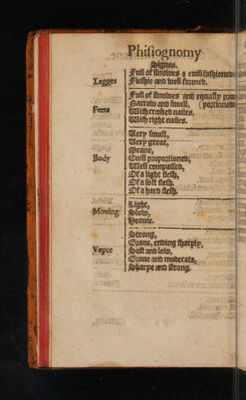 Phisiognomy
Signes.
Full of sinowes & euill fashioned.
Legges Fleshie and well formed.
Full of sinowes and equally pro
Narrow and small, ( portioned
Feete With croked nailes.
With right nailes.
Very small,
Very great,
Meane,
Body Euill proportioned,
Well compassed,
Of a light flesh,
Of a soft flesh.
Of a hard flesh.
Light,
Mouing Slow,
Heauie.
Strong,
Graue, ending sharply,
Voyce Soft and low,
Graue and moderate,
Sharpe and strong.